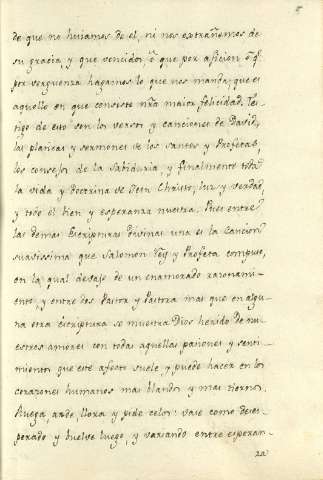 5
de que no huiamos de el, ni nos extrañemos de
su gracia y que vencidos ô que por aficion ô q̃
por verguenza hagamos lo que nos manda, que es
aquello en que consiste nr̃a maior felicidad. Tes-
tigo de esto son los versos y canciones de David,
las platicas y sermones de los Santos y Profetas,
los consejos de la Sabiduria, y finalmente toda
la vida y doctrina de Jesu Christo, luz y verdad,
y todo el bien y esperanza nuestra. Pues entre
las demas Escripturas divinas una es la cancion
suavissima que Salomon Rey y Profeta compuso,
en la qual devajo de un enamorado razonami-
ento, y entre dos Pastor y Pastora mas que en algu-
na otra escriptura se muestra Dios herido de nu-
estros amores con todas aquellas pasiones y senti-
mientos que este afecto suele, y puede hacer en los
corazones humanos mas blandos y mas tiernos.
Ruega, arde, llora y pide celos: vase como deses-
perado y buelve luego, y variando entre esperan-
za